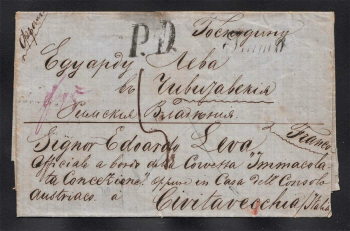 Господину
P.D.
Franco
Едуарду Лева
въ Чивитавекія
Римскія Владѣнія
Franco
Signor Edoardo Leva
Officiale a bordo della Corvetta "Immacola-
ta Concezione" oppure in Casa dell Console
Austriaco à
Civitavecchia / Italia